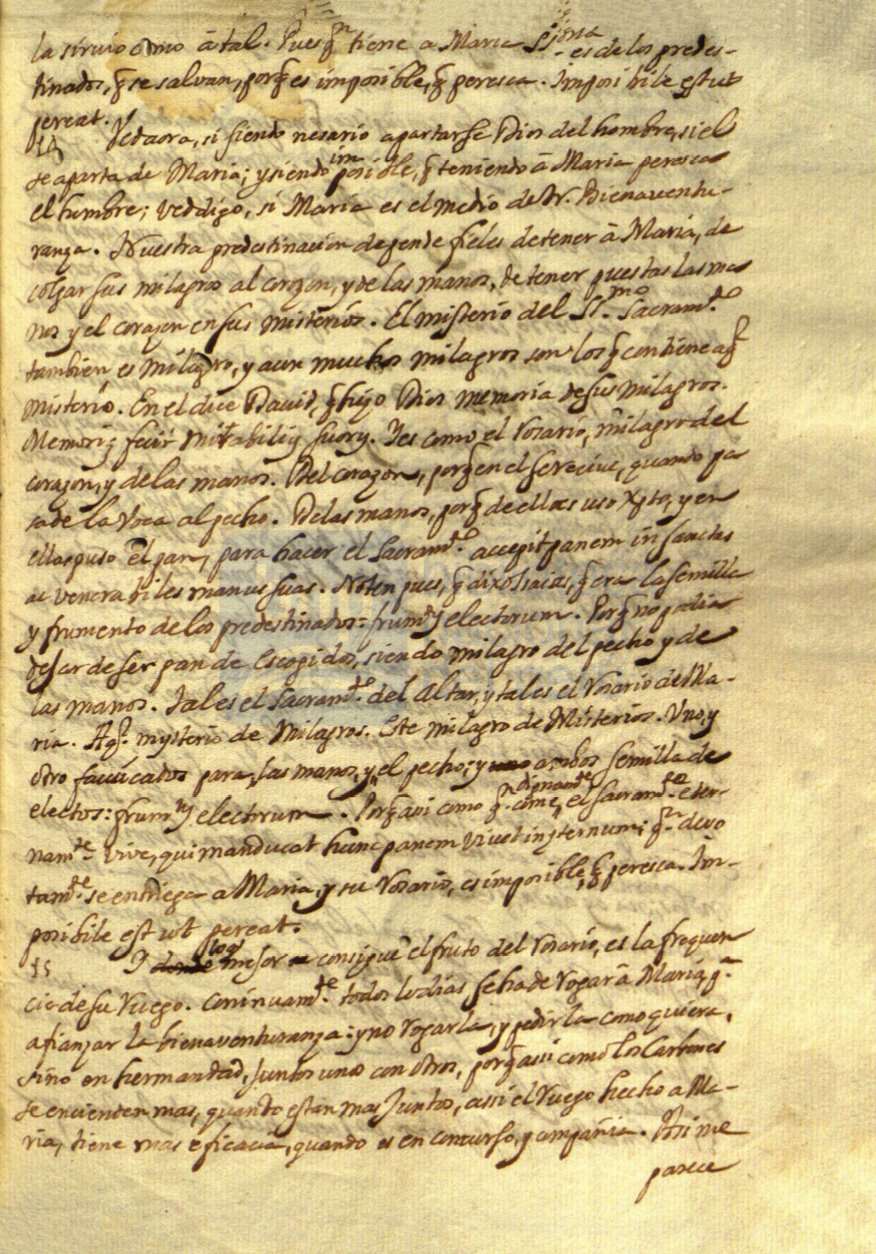 la sirvio como â tal. Pues qn tiene a Maria SSma es de los predes-
tinados, q̃ se salvan, porq̃ es imposible, q̃ peresca. Imposibile est ut
pereat.
14 Ved aora, si siendo nesario apartarse Dios del hombre, si el
se aparta de Maria; y siendo imposible, q̃ teniendo â Maria peresca
el humbre; ved digo, si Maria es el medio de Bienaventu-
ranza. Nuestra predestinacion depende fieles de tener â Maria, de
colgar sus milagros al corazon, y de las manos, de tener puestas las ma
nos y el corazon en sus misterios. El misterio del Smo Sacramto
tambien es milagro, y aun muchos milagros son los q̃ contiene aql
misterio. En el dice David, q̃ hizo Dios memoria de sus milagros.
Memoriã fecit mirabiliũ suorũ. Y es como el Rosario, milagro del
corazon, y de las manos. Del corazon, porq̃ en el se recive, quando pa
sa de la voca al pecho. De las manos, porq̃ de ellas uso Xpto, y en
ellas puso el pan, para hacer el Sacramto accepit panem in sanctas
ac venerabiles manus suas. Noten pues, q̃ dixo Isaias, q̃ era la semilla
y frumento de los predestinados: frumtũ electorum. Porq̃ no podia
dejar de ser pan de Escogidos, siendo milagro del pecho y de
las manos. Tal es el Sacramto del Altar, y tal es el Rosario de Ma-
ria. Aql mysterio de Milagros. Este milagro de Misterios. Uno, y
otro favricados para las manos, y el pecho; y ambos semilla de
electos: frumtũ electorum. Porq̃ asi como qn dignamte come, el Sacramto eter-
namte vive, qui manducat hunc panem vivet in æternum; qn devo
tamte se entrega a Maria, y su Rosario, es imposible, q̃ peresca. Im-
posibile est ut pereat.
15 Y lo q̃ mejor consigue el fruto del Rosario, es la frequen
cia de su Ruego. Coninuamte todos los dias se ha de rogar â Maria, pa
afianzar la bienaventuranza: y no rogarla, y pedirla como quiera,
sino en hermandad, juntos unos con otros, porq̃ asi como los Carbones
se encienden mas, quando estan mas juntos, assi el Ruego hecho a Ma-
ria, tiene mas eficacia, quando es en concurso, y compañia. Asi me
parece